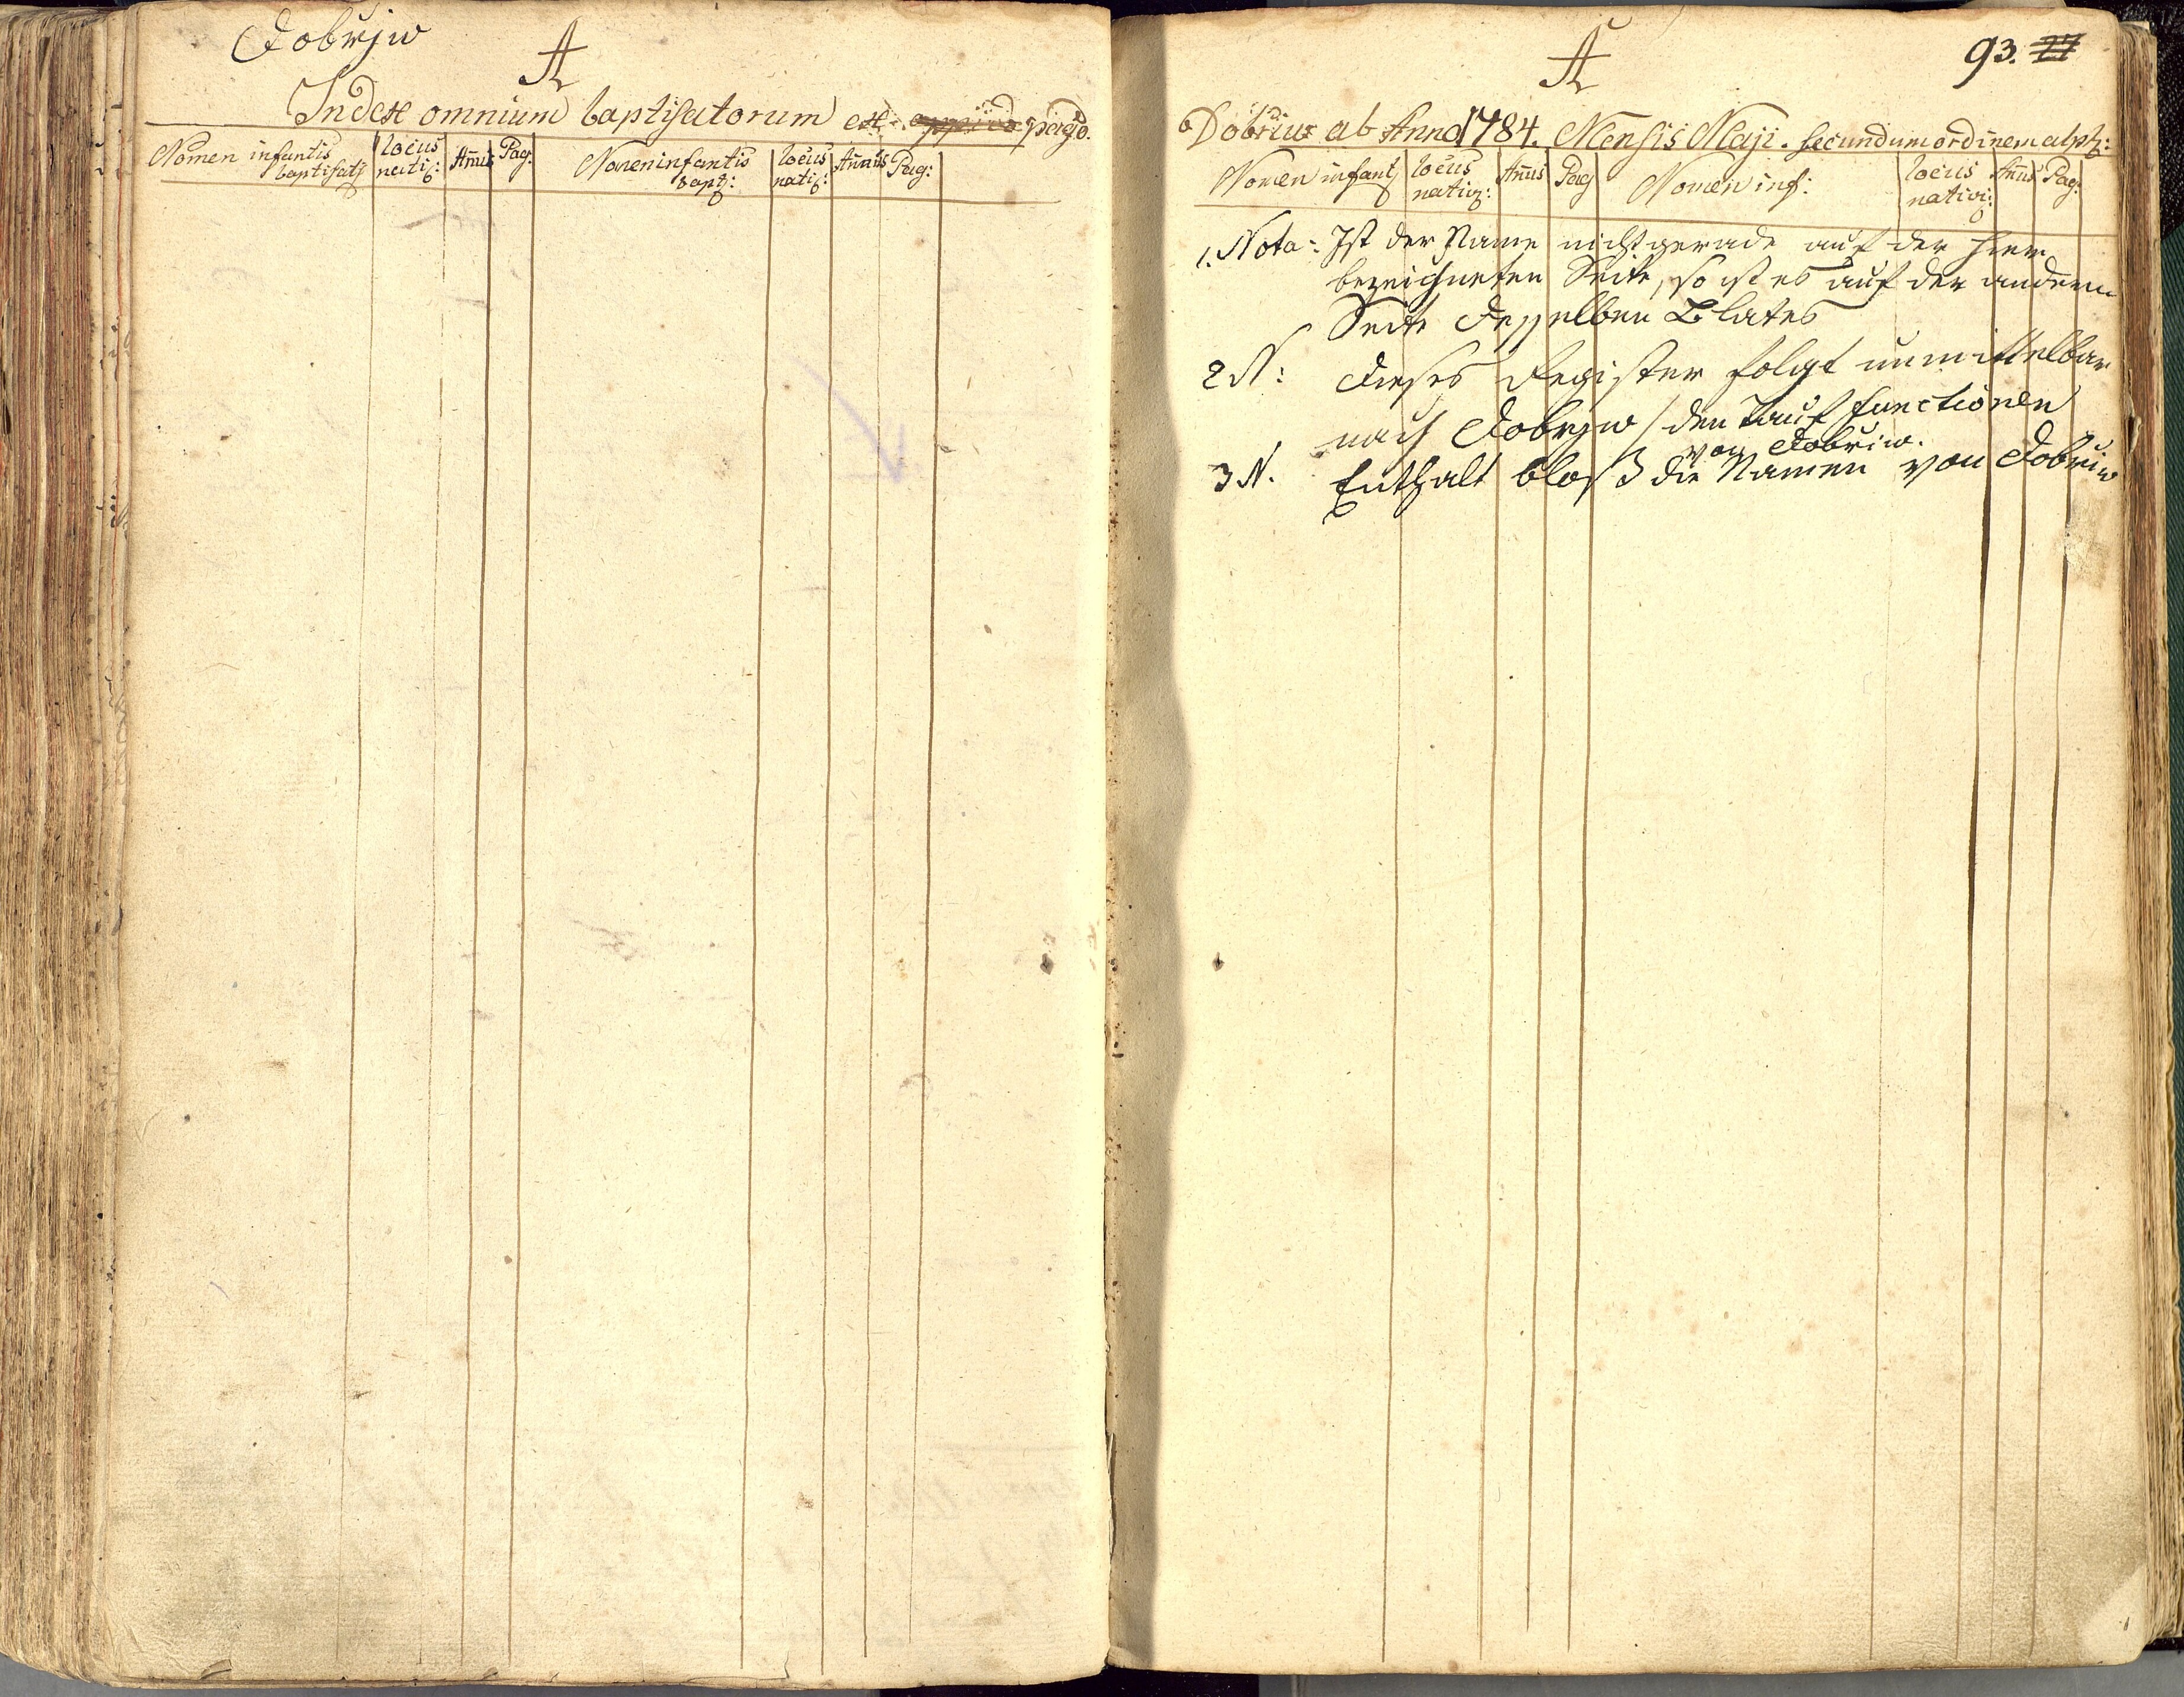 Dobrjw
A
Index omnium baptisatorum ex oppido pago
Nomen infantis baptisati
locus nativ:
Annus
Pag:
Nomen infantis bapt:
locus nativ:
Annus
Pag:
93. 77
A
Dobriw ab Anno 1784. Mensis Maji. secundum ordinem alph:
Nomen infant
locus nativ:
Annus
Pag
Nomen inf:
locus nativi:
Annus
Pag:
1. Nota: Ist der Name nicht gerade auf der hier
bezeichneten Seite, so ist es auf der andern
Seite desselben Blates
2 N: Dieses Register folgt unmittelbar
nach Dobrjw / den Tauffunctionen
von Dobriw.
3 N. Enthalt bloß die Namen von Dobriw